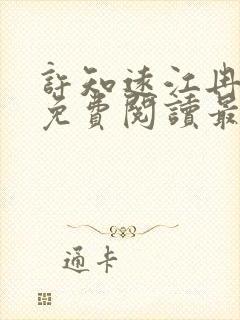 許知遠江冉
免費閱讀最
通卡